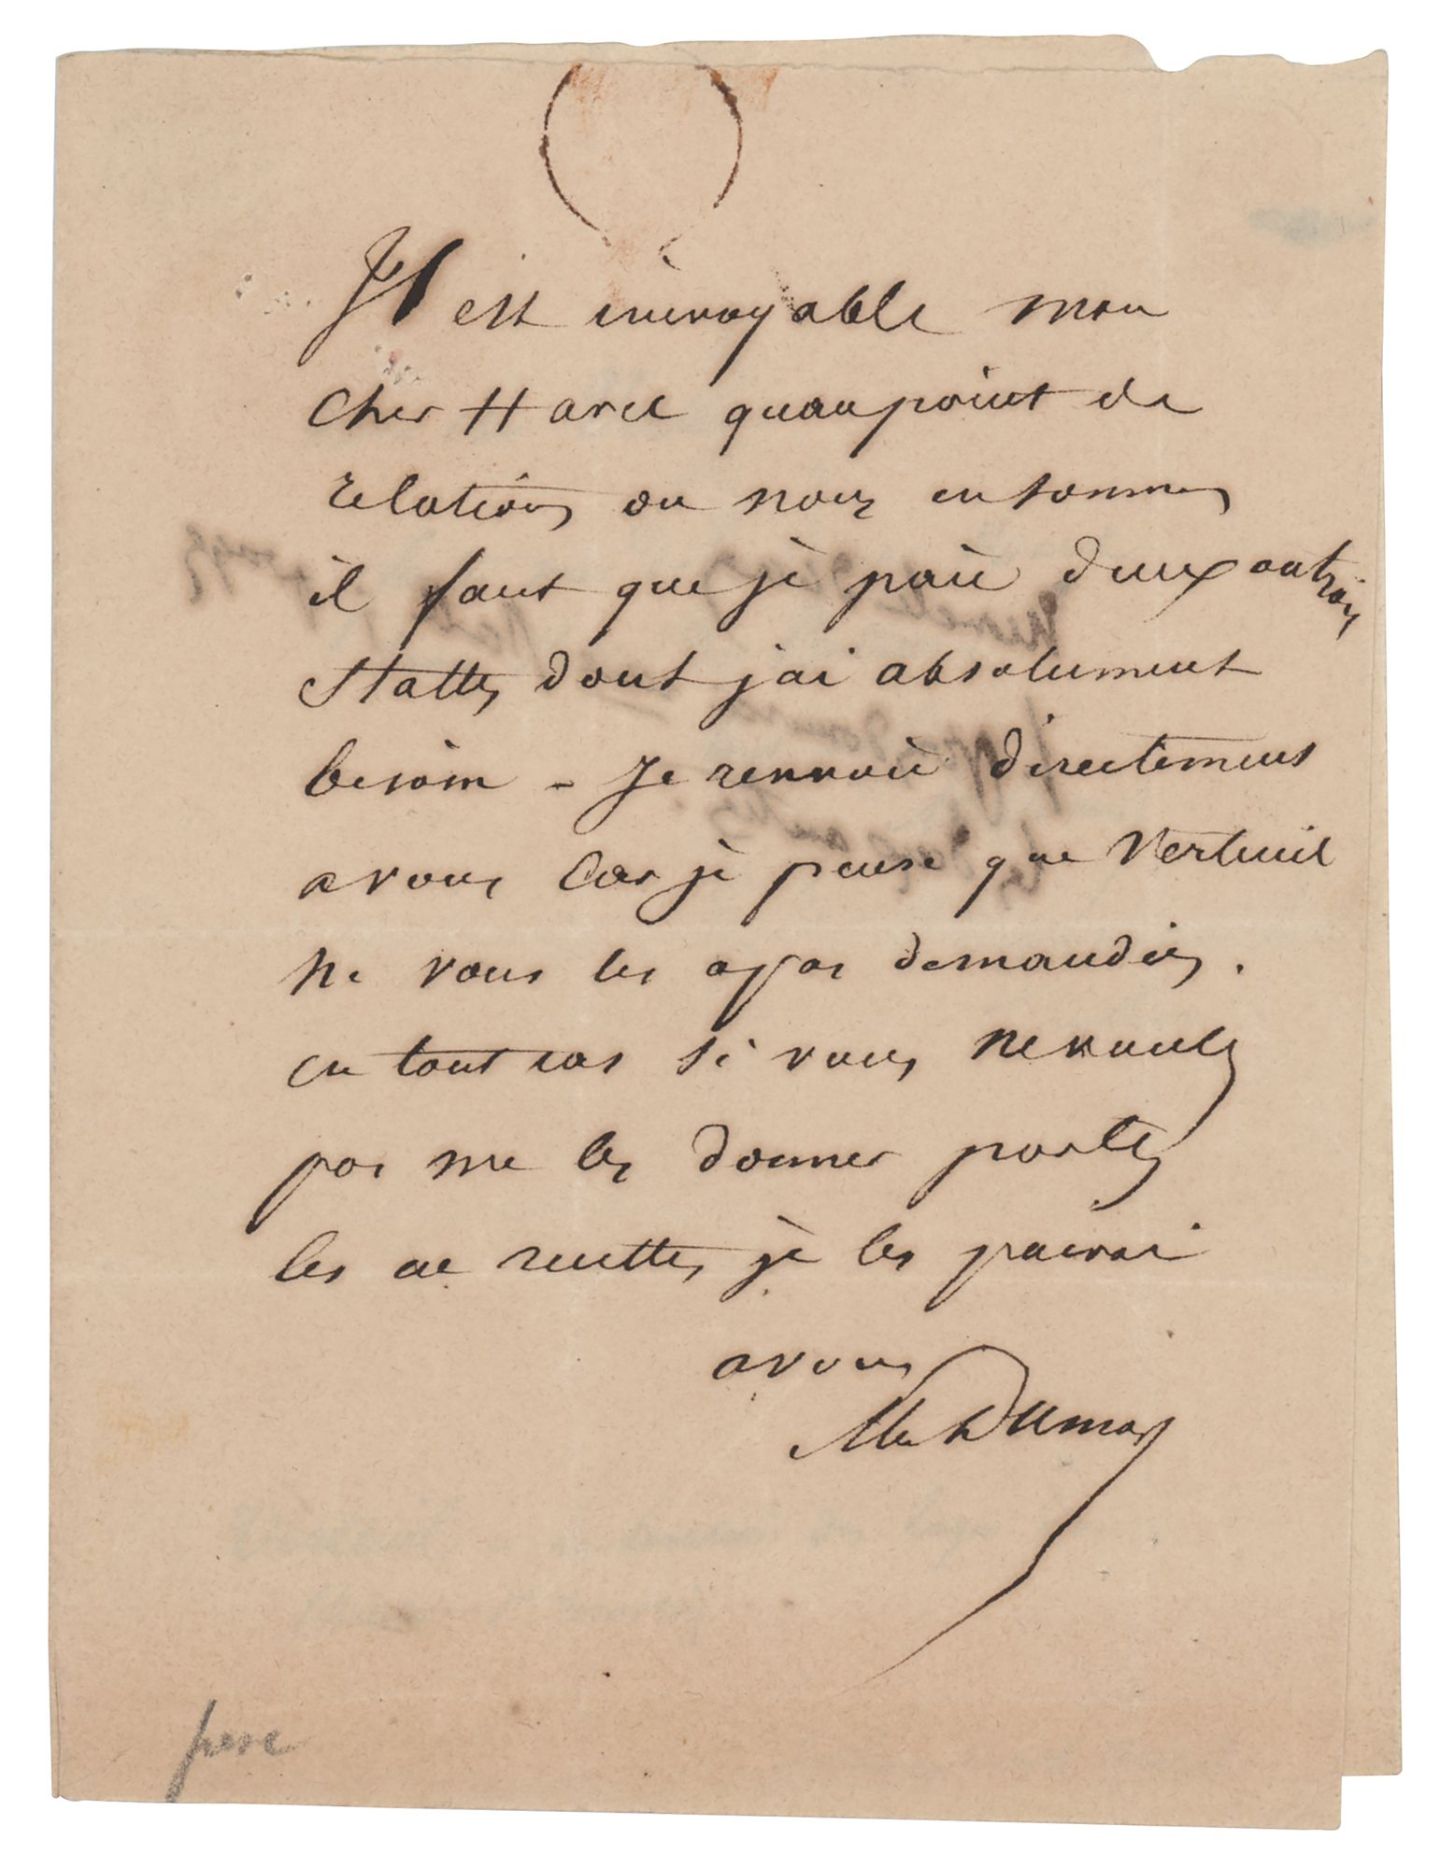 Il est incroyable mon
cher Harel quau point de
relations ou nous en sommes
il faut que je paie deux ou trois
stalles dont jai absolument
besoin - Je renvoie directement
a vous car je pense que Verteuil
ne vous les a pas demandées.
en tout cas si vous ne voulez
pas me les donner portez
les en recette, je les paierai
a vous
Alex Dumas
pere